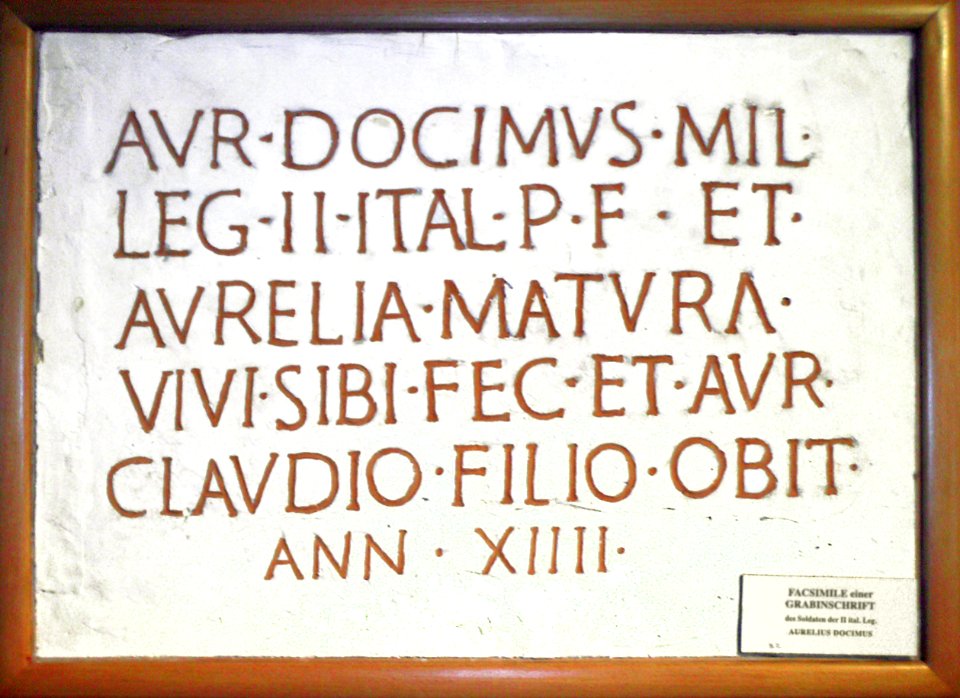 AVR·DOCIMVS·MIL·
LEG·II·ITAL·P·F · ET·
AVRELIA·MATVRA·
VIVI·SIBI·FEC·ET·AVR·
CLAVDIO·FILIO·OBIT·
ANN · XIIII·
FACSIMILE einer
GRABINSCHRIFT
des Soldaten der II ital. Leg.
AURELIUS DOCIMUS